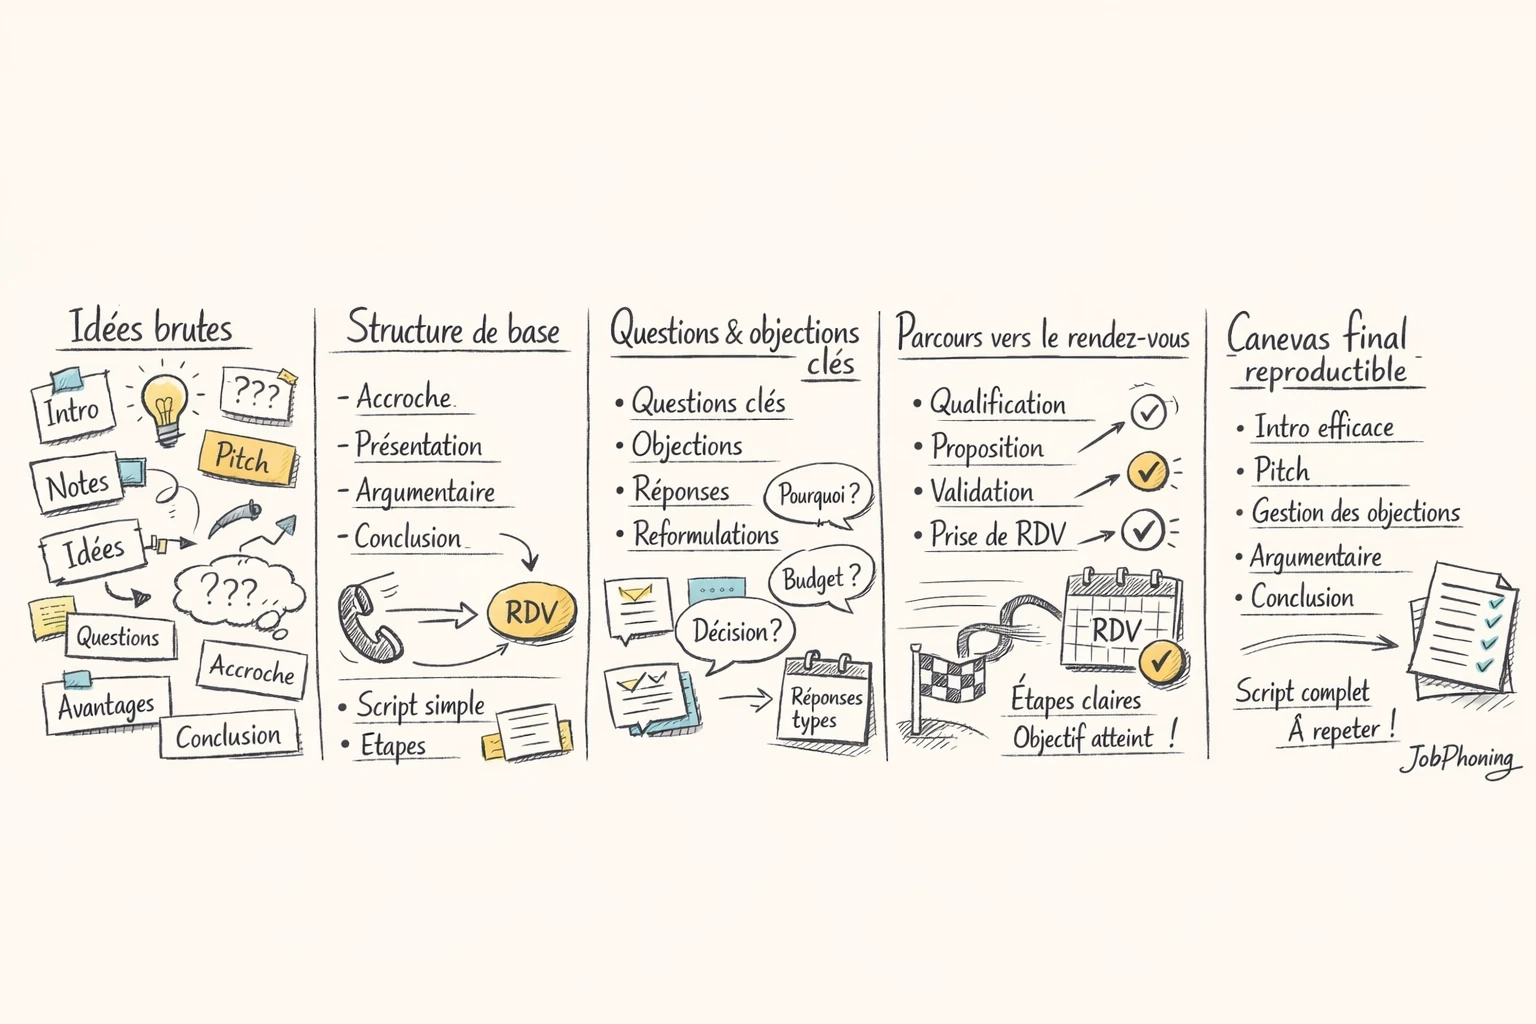 Idées brutes
Intro
???
Pitch
Notes
Idées
???
Questions
Accroche
Avantages
Conclusion
Structure de base
- Accroche.
- Présentation
- Argumentaire
- Conclusion
RDV
• Script simple
• Etapes
Questions & objections
clés
• Questions clés
• Objections
• Réponses
• Reformulations
Pourquoi ?
Budget ?
Décision ?
Réponses
types
Parcours vers le rendez-vous
• Qualification
• Proposition
• Validation
• Prise de RDV
RDV
Étapes claires
Objectif atteint !
Canevas final
reproductible
• Intro efficace
• Pitch
• Gestion des objections
• Argumentaire
• Conclusion
Script complet
Â repeter !
JobPhoning